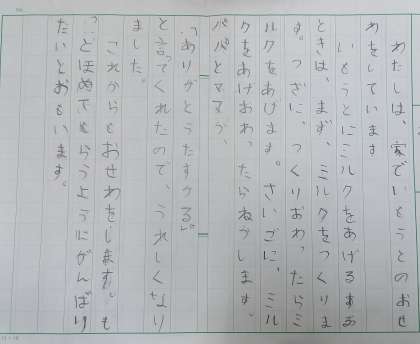 わたしは、家でいもうとのおせ
わをしています
いもうとにミルクをあげる
ときは、まず、ミルクをつくりま
す。つぎに、つくりおわったらミ
ルクをあげます。さいごに、ミル
クをあげおわったらねかします。
パパとママが、
「ありがとうたすかる」
と言ってくれたので、うれしくなり
ました。
これからもおせわをします。も
っとほめてもらうようにがんばり
たいとおもいます。